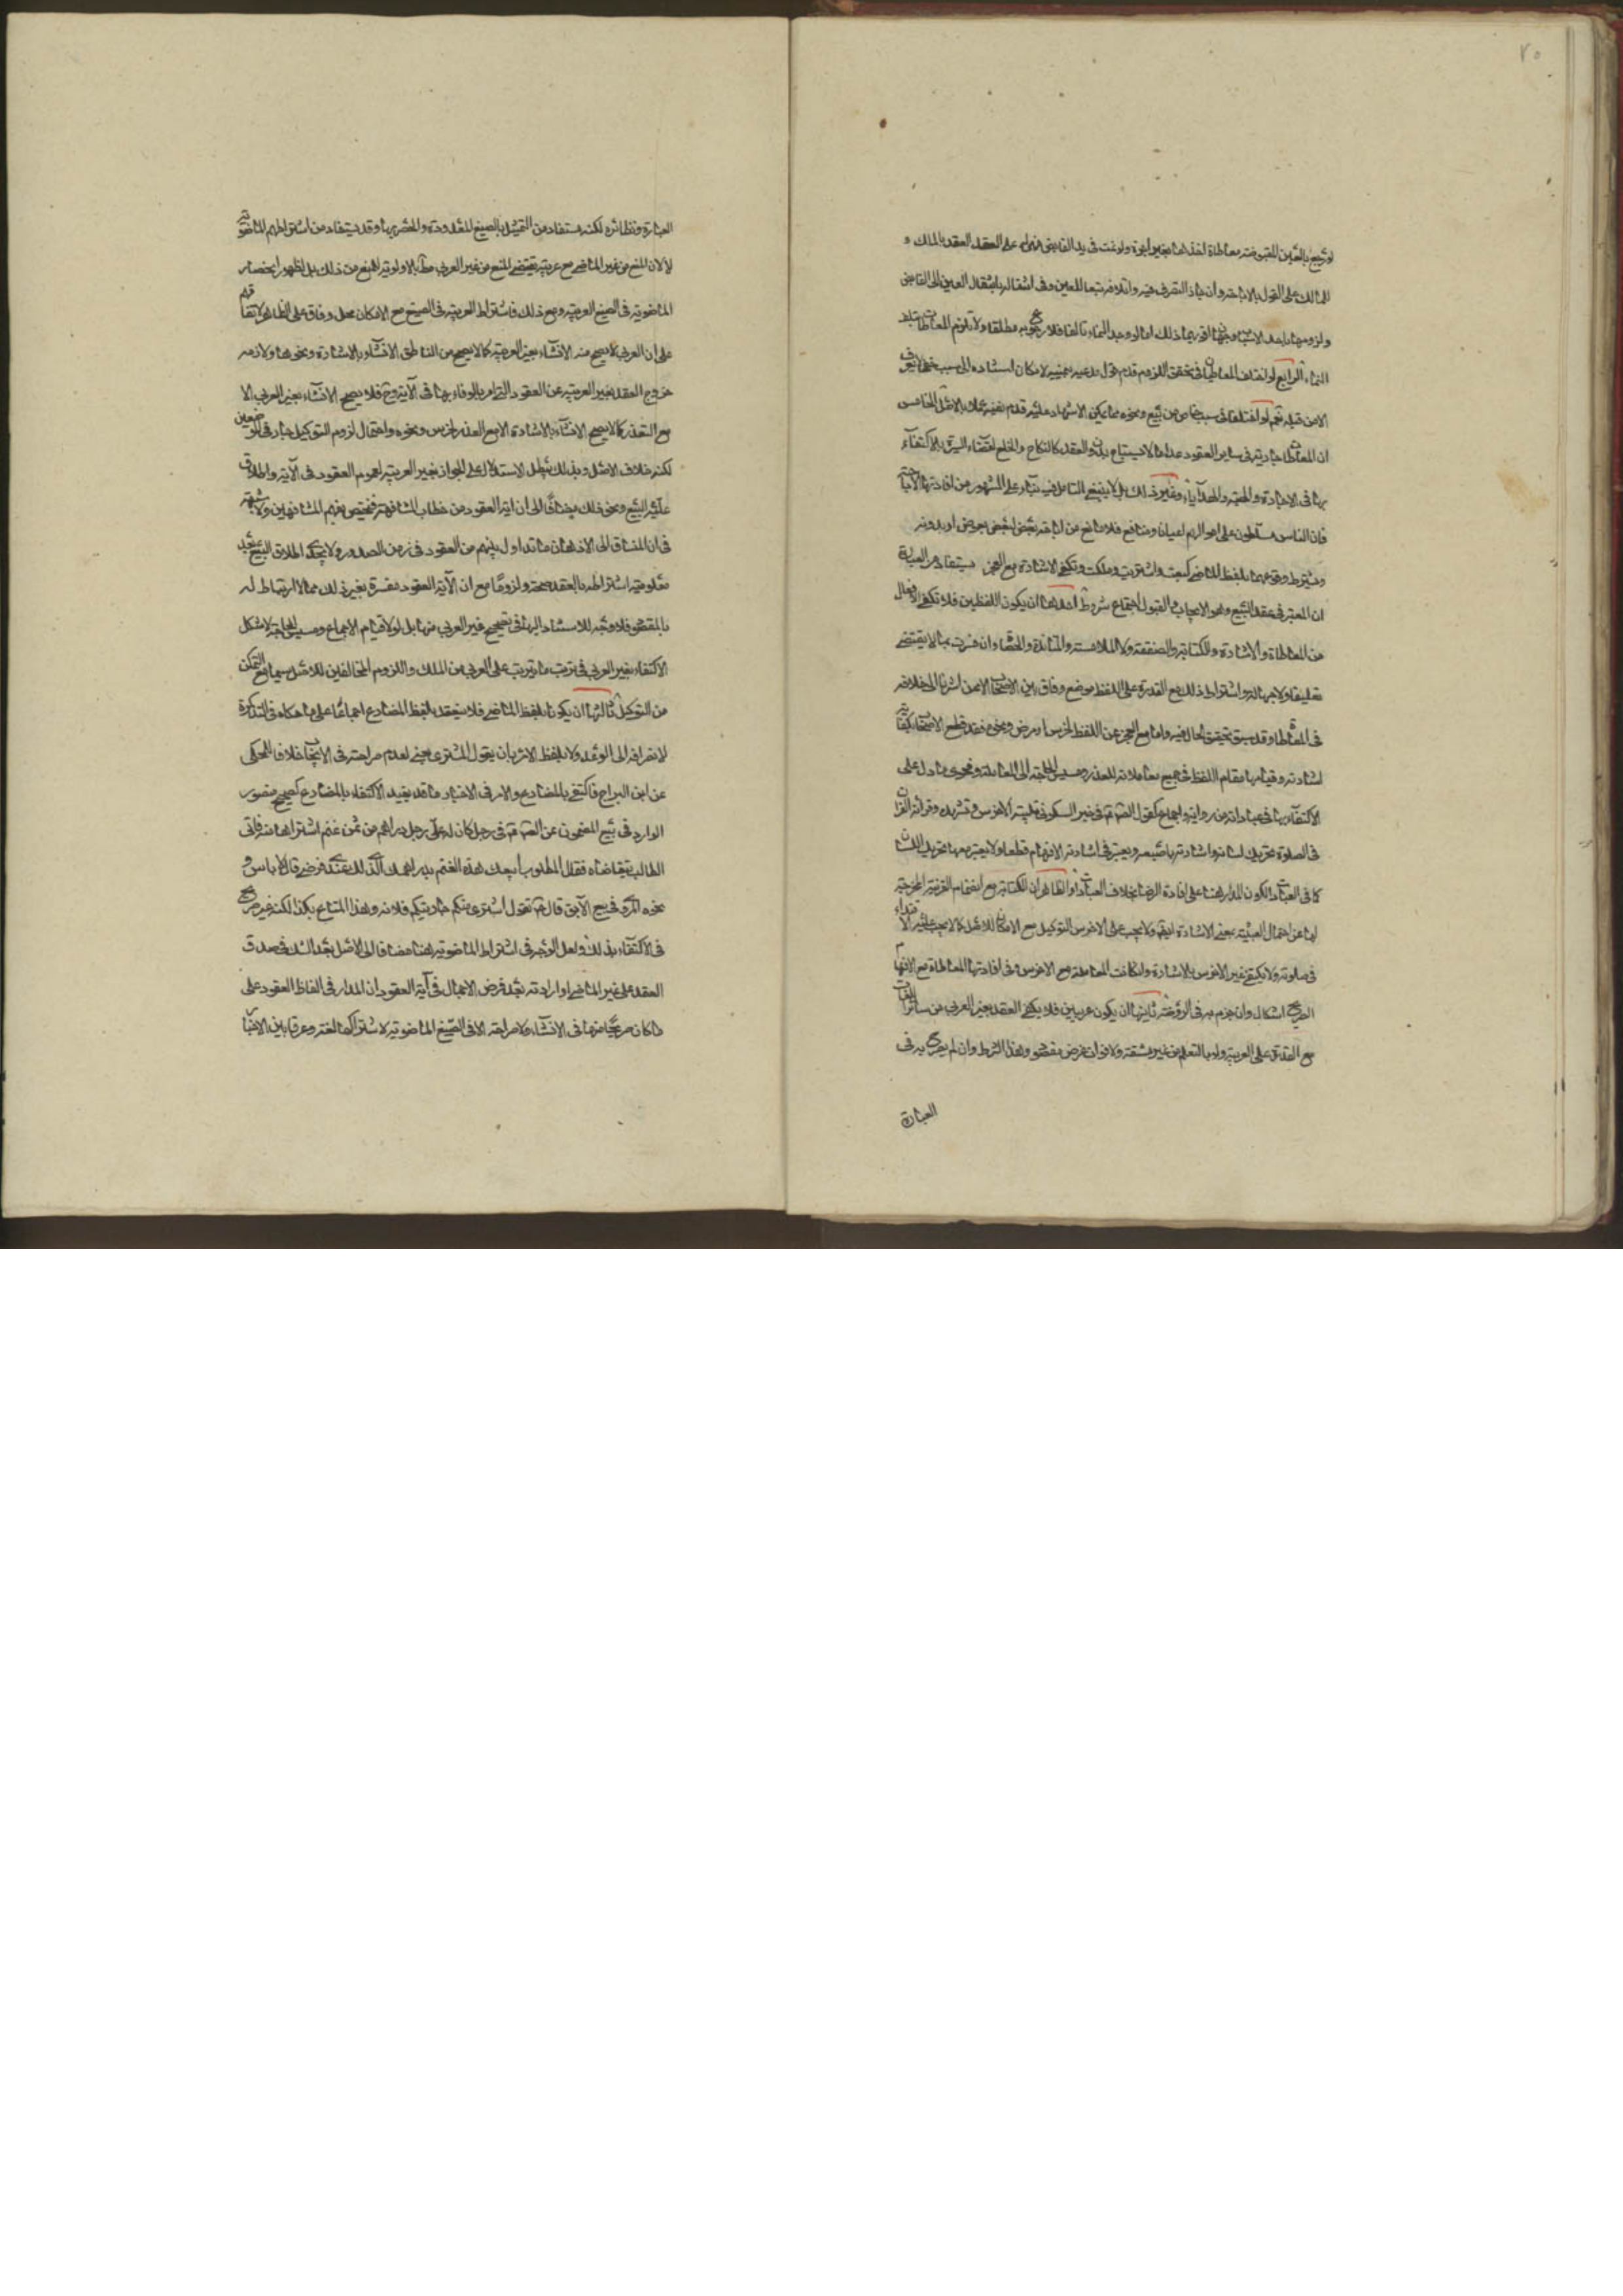 ٢٠
ولزومها باحد الاسباب
النماء الرابع لو اختلف المتعاطيان في تحقق اللزوم قدم قول مدعيه بيمينه لامكان استناده الى سبب
الا من قبله نعم لو اختلفا في سبب خاص من بيع ونحوه مما يمكن الاشهاد عليه قدم نفيه عملا بالاصل الخامس
ان المعاطاة جارية في ساير العقود عدا ما لا يستباح بدون العقد كالنكاح والخلع لقضاء السيرة بالاكتفاء
بها في الاجارة والهبة والهدايا وغير ذلك بل لا ينبغي التامل فيه بناء على المشهور من افادتها الاباحة
فان الناس مسلطون على اموالهم اعيانا ومنافع فلا مانع من اباحة بعض لبعض بعوض او بدونه
ويشترط وقوعهما بلفظ الماضي كبعت واشتريت وملكت وتكفي الاشارة مع العجز يستفاد من العبارة
ان المعتبر في عقد البيع وهو الايجاب والقبول اجتماع شروط احدها ان يكون اللفظين فلا تكفي الافعال
من المعاطاة والاشارة والكتابة والصفقة ولا الملامسة والمنابذة والحصاة وان فسرت بما لا يقتضي
تعليقا ولا جهالة واشتراط ذلك مع القدرة على اللفظ موضع وفاق بين الاصحاب الا من اشرنا الى خلافه
في المعاطاة وقد سبق تحقيق الحال فيه واما مع العجز عن اللفظ لخرس او مرض ونحوه فقد قطع الاصحاب بكفاية
اشارته وقيامها مقام اللفظ في جميع معاملاته للعذر ومسيس الحاجة الى المعاملة وفحوى ما دل على
الاكتفاء بها في عباداته من رواية واجماع كقول الصادق في خبر السكوني تلبية الاخرس وتشهده وقرائة القران
في الصلوة تحريك لسانه واشارته باصبعه ويعتبر في اشارته الافهام قطعا ولا يعتبر معها تحريك اللسان
كما في العبادات لكون المدار هنا على افادة الرضا بخلاف العبادات والظاهر ان الكتابة مع انضمام القرينة المخرجة
لها عن احتمال العبثية بمعنى الاشارة ايضا ولا يجب على الاخرس التوكيل مع الامكان للاصل كما لا يجب عليه الاقتداء
في صلوته ولا يكتفي غير الاخرس بالاشارة وان كانت المعاملة مع الاخرس وفي افادتها المعاطاة مع الافهام
الصريح اشكال وان جزم به في الروضة ثانيها ان يكون عربيين فلا يكفي العقد بغير العربي من سائر اللغات
مع القدرة على العربية ولو بالتعلم من غير مشقة ولا فوات غرض مقصود وهذا الشرط وان لم يصرح به في
العبارة
العبارة ونظائره لكنه مستفاد من التمثيل بالصيغ المعدودة والحصر بها وقد يستفاد من اشتراطهم الماضوية
لا لان المنع من غير الماضي مع عربيته يقتضي المنع من غير العربي مطلقا بالاولوية للمنع من ذلك بل لظهور انحصار
الماضوية في الصيغ العربية ومع ذلك فاشتراط العربية في الصيغ مع الامكان محل وفاق على الظاهر لاتفاقهم
على ان العربي لا يصح منه الانشاء بغير العربية كما لا يصح من الناطق الانشاء بالاشارة ونحوها ولازمه
خروج العقد بغير العربية عن العقود التي امر بالوفاء بها في الآية وح فلا يصح الانشاء بغير العربي الا
مع التعذر كما لا يصح الانشاء بالاشارة الا مع العذر لخرس ونحوه واحتمال لزوم التوكيل جار في الموضعين
لكنه خلاف الاصل وبذلك يبطل الاستدلال على الجواز بغير العربية لعموم العقود في الآية واطلاق
حلية البيع ونحو ذلك مضافا الى ان اية العقود من خطاب المشافهة فيختص بفهم المشافهين ولا شبهة
في ان المنساق الى الاذهان ما تداول بينهم من العقود في زمن الصدور ولا يجدي اطلاق البيع بعد
معلومية اشتراطه بالعقد صحة ولزوما مع ان الآية العقود مفسرة بغير ذلك مما لا ارتباط له
بالمقصود فلا وجه للاستناد اليها في تصحيح غير العربي منها بل لولا قيام الاجماع ومسيس الحاجة لاشكل
الاكتفاء بغير العربي في ترتب ما يترتب على العربي من الملك واللزوم المخالفين للاصل سيما مع التمكن
من التوكيل ثالثها ان يكونا بلفظ الماضي فلا ينعقد بلفظ المضارع اجماعا على ما حكاه في التذكرة
لانصرافه الى الوعد ولا بلفظ الامر بان يقول المشتري بعني لعدم صراحته في الايجاب خلافا للمحكي
عن ابن البراج فاكتفى بالمضارع والامر وفي الاخبار ما قد يفيد الاكتفاء بالمضارع كصحيح منصور
الوارد في بيع المضمون عن الصادق في رجل كان له على رجل دراهم من ثمن غنم اشتراها منه فاتى
الطالب يتقاضاه فقال المطلوب ابيعك هذه الغنم بدراهمك الذي لك عندي فرضي قال لا باس و
نحوه المروي في بيع الآبق قال تقول اشتري منكم جاريتكم فلانة وهذا المتاع بكذا لكنه غير صريح
في الاكتفاء بذلك ولعل الوجه في اشتراط الماضوية هنا مضافا الى الاصل بعد الشك في صدق
العقد على غير الماضي او ارادته بعد فرض الاجمال في آية العقود ان المدار في الفاظ العقود على
ما كان صريحا منها في الانشاء ولا صراحة الا في الصيغ الماضوية لاشتراك لغة وعرفا بين الاخبار